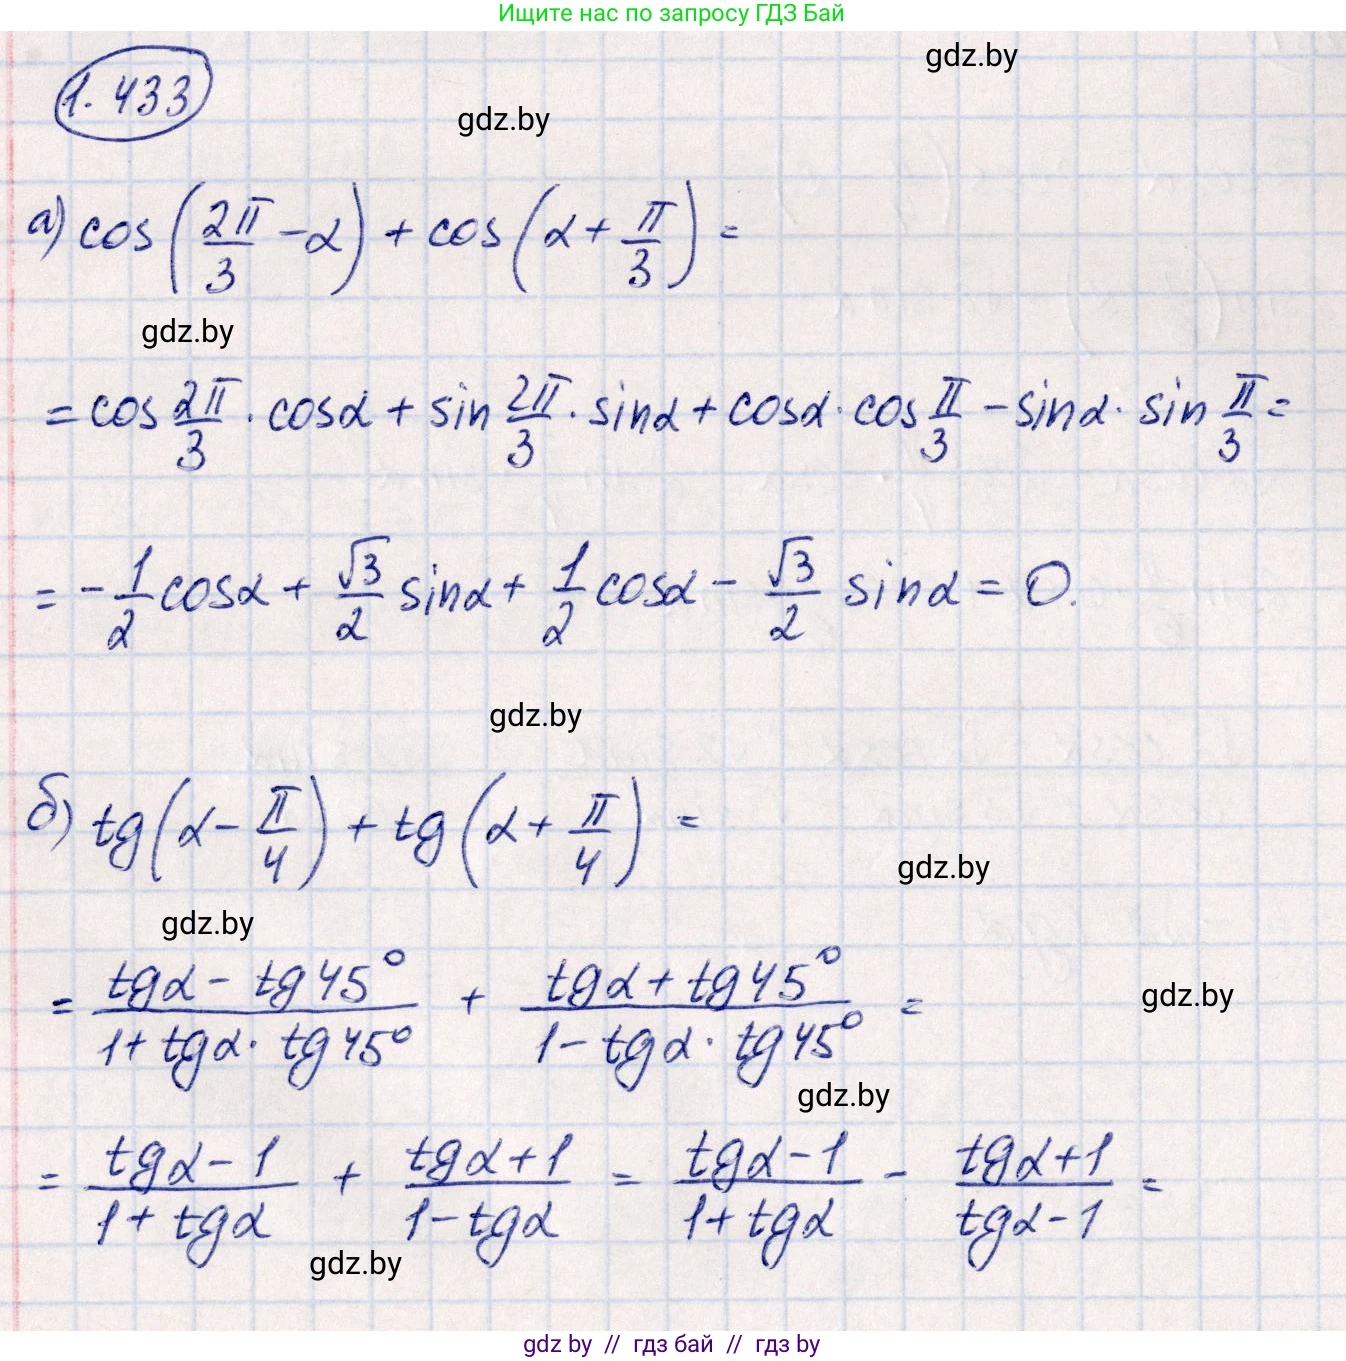 Ищите нас по запросу ГДЗ Бай
gdz.by
1.433
gdz.by
а) cos(2π/3 - α) + cos(α + π/3) =
gdz.by
= cos 2π/3 · cosα + sin 2π/3 · sinα + cosα · cos π/3 - sinα · sin π/3 =
= -1/2 cosα + √3/2 sinα + 1/2 cosα - √3/2 sinα = 0.
gdz.by
б) tg(α - π/4) + tg(α + π/4) =
gdz.by
gdz.by
= (tgα - tg45°)/(1 + tgα · tg45°) + (tgα + tg45°)/(1 - tgα · tg45°) =
gdz.by
gdz.by
= (tgα - 1)/(1 + tgα) + (tgα + 1)/(1 - tgα) = (tgα - 1)/(1 + tgα) - (tgα + 1)/(tgα - 1) =
gdz.by
gdz by // гдз бай // гдз by